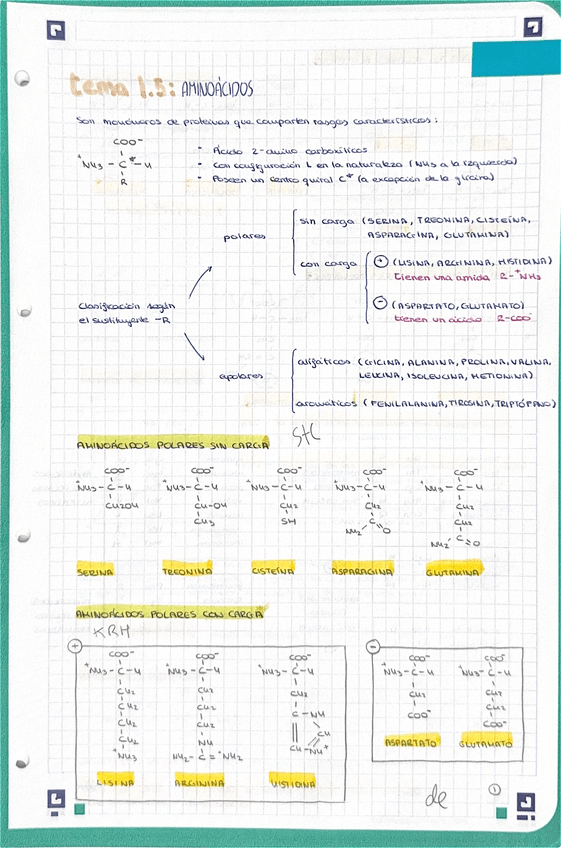 tema 1.5: AMINOÁCIDOS
Son monómeros de proteínas que comparten rasgos característicos:
COO⁻
⁺NH₃ - C* - H
R
- Ácido 2-amino carboxílicos
- Con configuración L en la naturaleza (NH₃ a la izquierda)
- Poseen un centro quiral C* (a excepción de la glicina)
Clasificación según
el sustituyente -R
polares
sin carga (SERINA, TREONINA, CISTEÍNA,
ASPARAGINA, GLUTAMINA)
con carga
⊕ (LISINA, ARGININA, HISTIDINA)
tienen una amida R-⁺NH₃
⊖ (ASPARTATO, GLUTAMATO)
tienen un ácido R-COO⁻
apolares
alifáticos (GLICINA, ALANINA, PROLINA, VALINA,
LEUCINA, ISOLEUCINA, METIONINA)
aromáticos (FENILALANINA, TIROSINA, TRIPTÓFANO)
AMINOÁCIDOS POLARES SIN CARGA
COO⁻ COO⁻ COO⁻ COO⁻ COO⁻
⁺NH₃-C-H ⁺NH₃-C-H ⁺NH₃-C-H ⁺NH₃-C-H ⁺NH₃-C-H
CH₂OH CH-OH CH₂ CH₂ CH₂
CH₃ SH NH₂ C O CH₂
NH₂ C=O
SERINA TREONINA CISTEÍNA ASPARAGINA GLUTAMINA
AMINOÁCIDOS POLARES CON CARGA
KRH
+
COO⁻ COO⁻ COO⁻
⁺NH₃-C-H ⁺NH₃-C-H ⁺NH₃-C-H
CH₂ CH₂ CH₂
CH₂ CH₂ C-NH
CH₂ CH₂ CH
CH₂ NH CH-NH⁺
⁺NH₃ NH₂-C=⁺NH₂
LISINA ARGININA HISTIDINA
-
COO⁻ COO⁻
⁺NH₃-C-H ⁺NH₃-C-H
CH₂ CH₂
COO⁻ CH₂
COO⁻
ASPARTATO GLUTAMATO
de
1